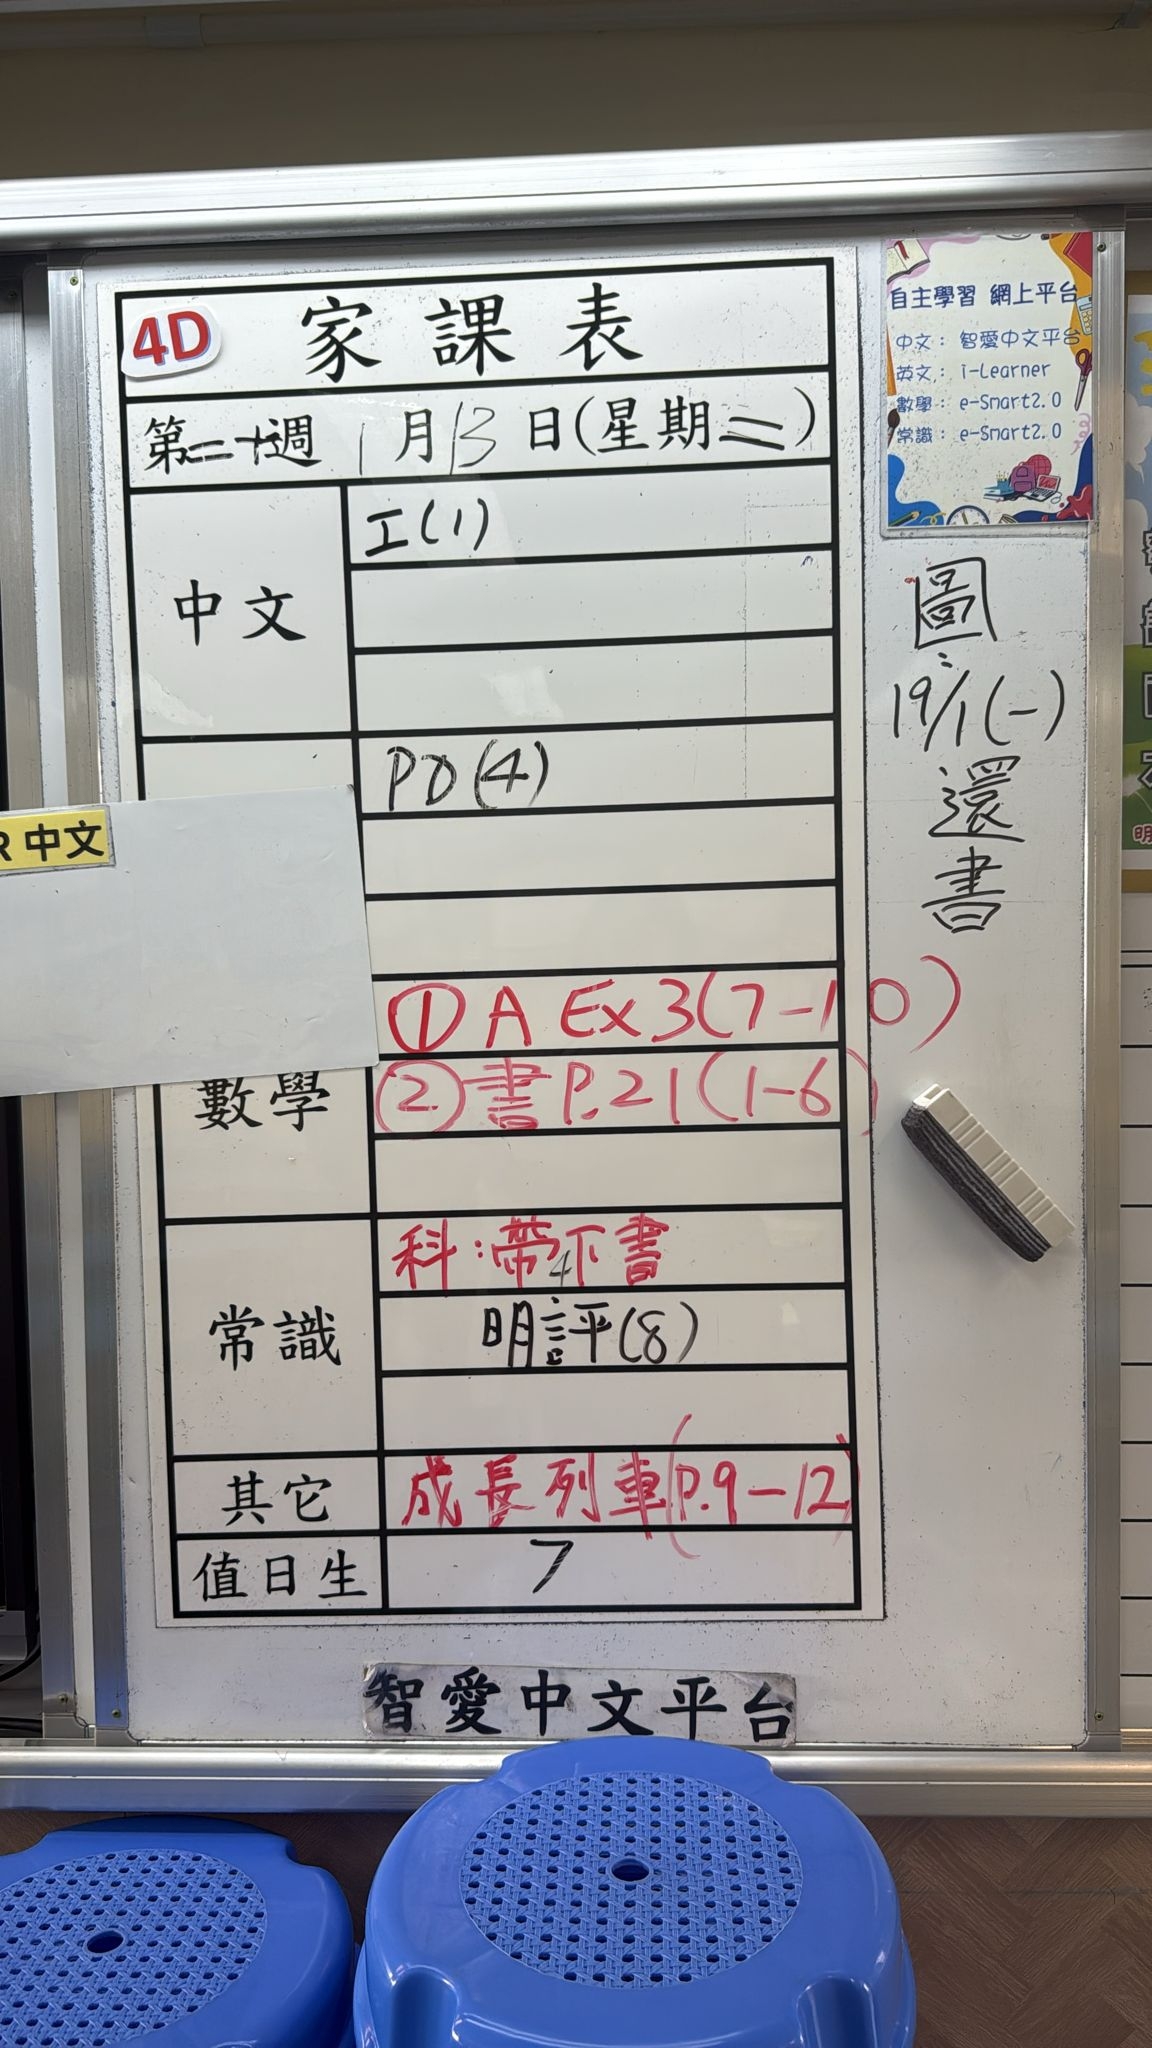 4D 家課表
第二十週 1月13日(星期二)
中文
工(1)
PD(4)
R 中文
數學
①A Ex 3(7-10)
②書P.21(1-6)
常識
科:帶4下書
明評(8)
其它
成長列車(P.9-12)
值日生
7
智愛中文平台
自主學習 網上平台
中文: 智愛中文平台
英文: i-Learner
數學: e-Smart2.0
常識: e-Smart2.0
圖:
19/1(一)
還
書
明